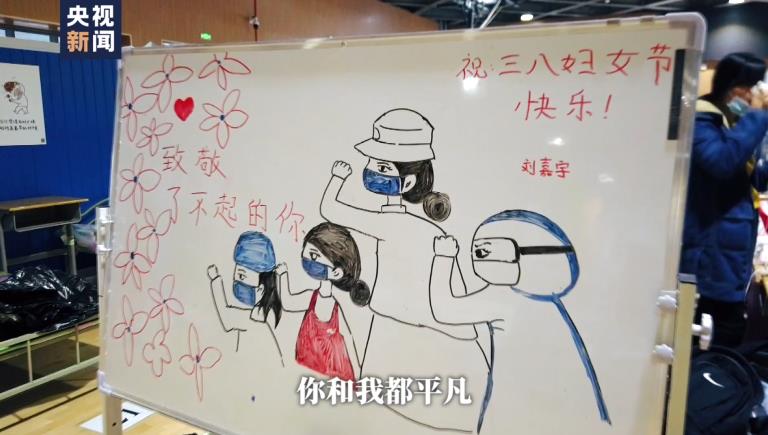 央视
新闻
祝:三八妇女节
快乐!
刘嘉宇
致敬
了不起的你
你和我都平凡